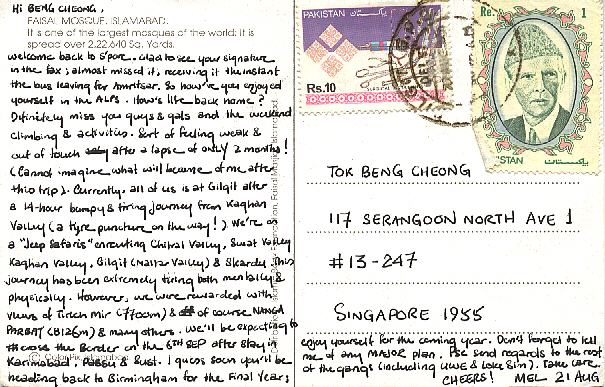 Hi BENG CHEONG,
FAISAL MOSQUE, ISLAMABAD.
It is one of the largest mosques of the world: It is
spread over 2.22.640 Sq. Yards.
welcome back to S'pore. Glad to see your signature
in the fax; almost missed it, receiving it the instant
the bus leaving for Amritsar. So how've you enjoyed
yourself in the ALPS. How's life back home?
Definitely miss you guys & gals and the weekend
climbing & activities. Sort of feeling weak &
out of touch after a lapse of only 2 months!
(Cannot imagine what will become of me after
this trip). Currently, all of us is at Gilgit after
a 14-hour bumpy & tiring journey from Kaghan
Valley (a tyre puncture on the way!). We're on
a "Jeep Safaris" enrouting Chitral Valley, Swat Valley
Kaghan Valley, Gilgit (Naltar Valley) & Skardu. This
journey has been extremely tiring both mentally &
physically. However, we were rewarded with
views of Tirich Mir (7700m) & of course NANGA
PARBAT (8126m) & many others. We'll be expecting to
cross the Border on the 6TH SEP after stay in
Karimabad, Passu & Sust. I guess soon you'll be
heading back to Birmingham for the Final Year;
© Color Pix, Islamabad
PAKISTAN
Rs.10
SURGICAL
Re. 1
STAN
پاکستان
TOK BENG CHEONG
117 SERANGOON NORTH AVE 1
#13-247
SINGAPORE 1955
enjoy yourself for the coming year. Don't forget to tell
me of any MAJOR plan. Pse send regards to the rest
of the gangs (including UWE & Loke Sim). Take care.
CHEERS! MEL 21 AUG